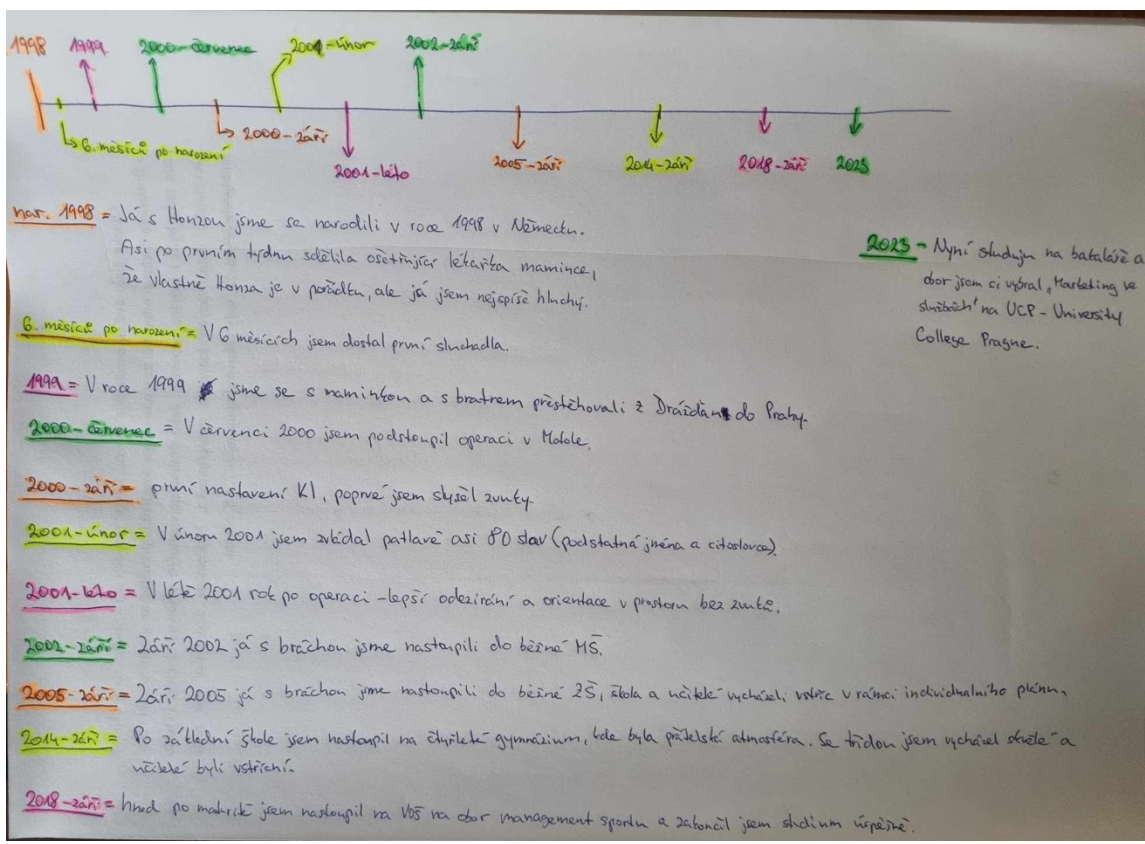 1998 1999 2000-červenec 2001-únor 2002-září
6. měsíců po narození 2000-září 2001-léto 2005-září 2014-září 2018-září 2023
nar. 1998 = Já s Honzou jsme se narodili v roce 1998 v Německu.
Asi po prvním týdnu sdělila ošetřující lékařka mamince,
že vlastně Honza je v pořádku, ale já jsem nejspíše hluchý.
6. měsíců po narození = V 6 měsících jsem dostal první sluchadla.
1999 = V roce 1999 jsme se s maminkou a s bratrem přestěhovali z Drážďan do Prahy.
2000-červenec = V červenci 2000 jsem podstoupil operaci v Motole.
2000-září = první nastavení KI, poprvé jsem slyšel zvuky.
2001-únor = V únoru 2001 jsem zvládal patlavě asi 80 slov (podstatná jména a citoslovce).
2001-léto = V létě 2001 rok po operaci - lepší odezírání a orientace v prostoru bez zvuků.
2002-září = Září 2002 já s bráchou jsme nastoupili do běžné MŠ.
2005-září = Září 2005 já s bráchou jsme nastoupili do běžné ZŠ, škola a učitelé vycházeli vstříc v rámci individualního plánu.
2014-září = Po základní škole jsem nastoupil na čtyřleté gymnázium, kde byla přátelská atmosféra. Se třídou jsem vycházel skvěle a
učitelé byli vstřícní.
2018-září = hned po maturitě jsem nastoupil na VOŠ na obor management sportu a zakončil jsem studium úspěšně.
2023 - Nyní studuju na bakaláře a
obor jsem si vybral „Marketing ve
službách' na UCP - University
College Prague.